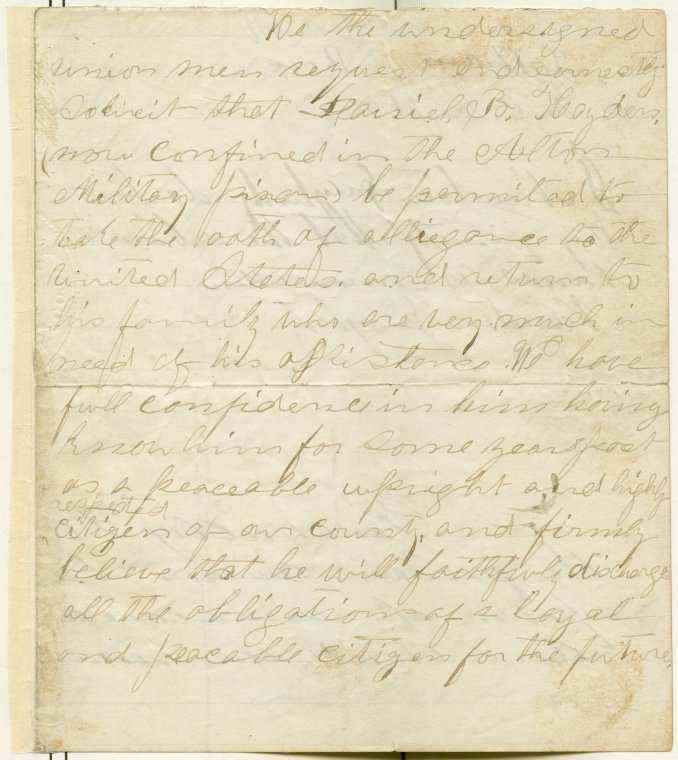 We the undersigned
union men request and earnestly
solicit that Daniel B. Hayden,
(now confined in the Alton
Military prison) be permited to
take the oath of alliegance to the
United States. and return to
his family who are very much in
need of his assistance. We have
full confidence in him having
know him for some years past
as a peaceable upright and highly
respected
citizen of our county, and firmly
believe that he will faithfuly discharge
all the obligations of a loyal
and peacable citizen for the future.